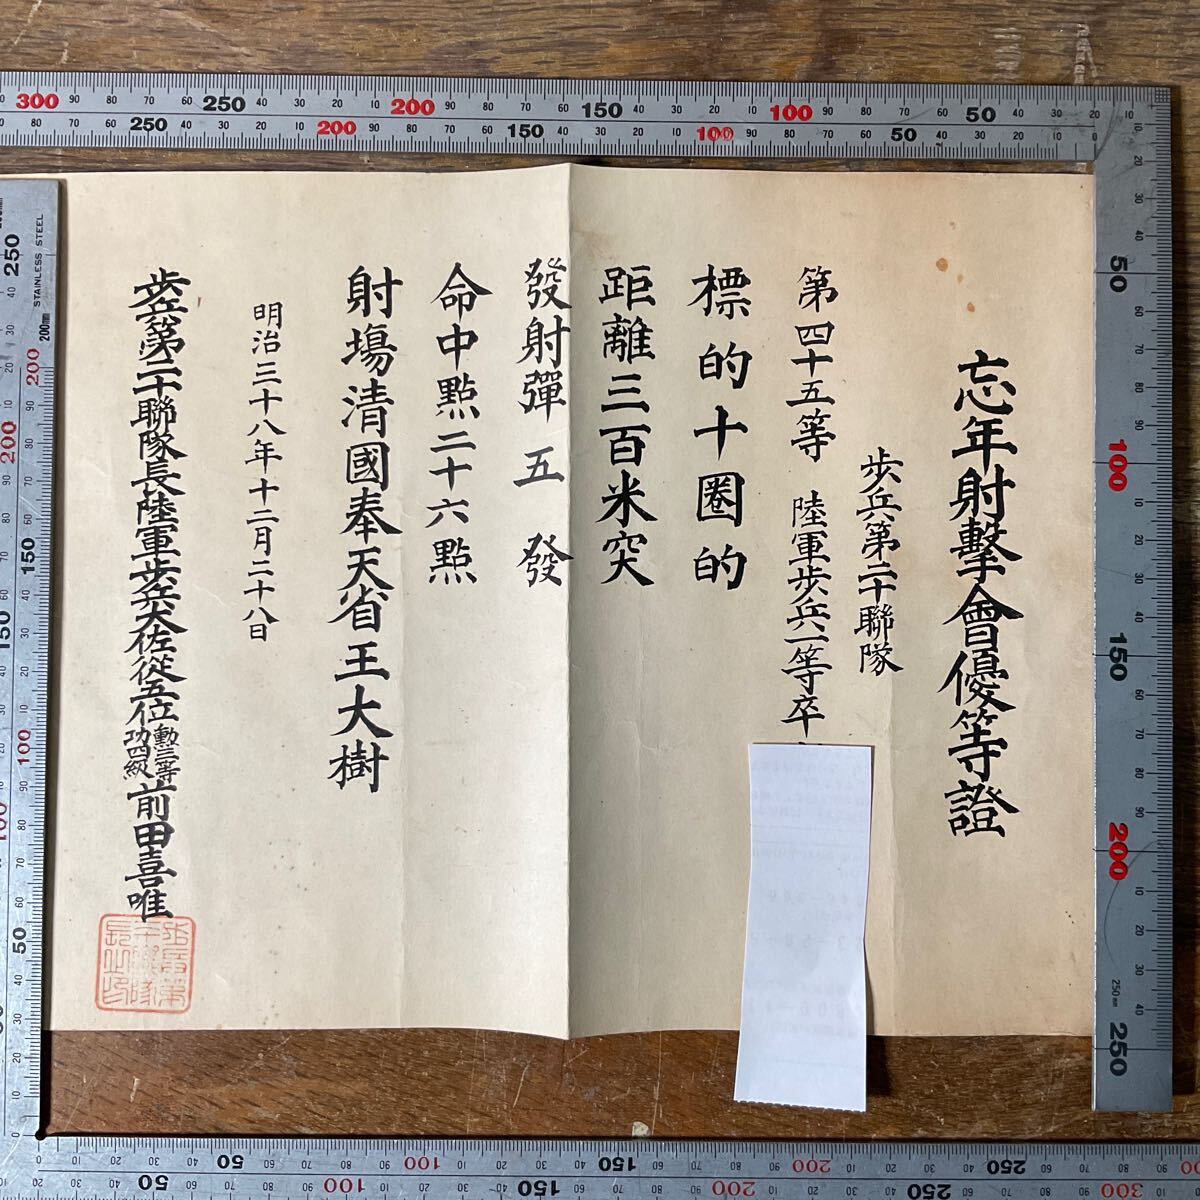 忘年射擊會優等證
歩兵第二十聯隊
第四十五等 陸軍歩兵一等卒
標的十圏的
距離三百米突
發射彈五發
命中點二十六點
射場清國奉天省王大樹
明治三十八年十二月二十八日
歩兵第二十聯隊長陸軍歩兵大佐從五位勳三等功四級前田喜唯
STAINLESS STEEL